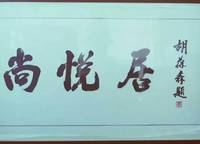 尚悦居
胡葆森题